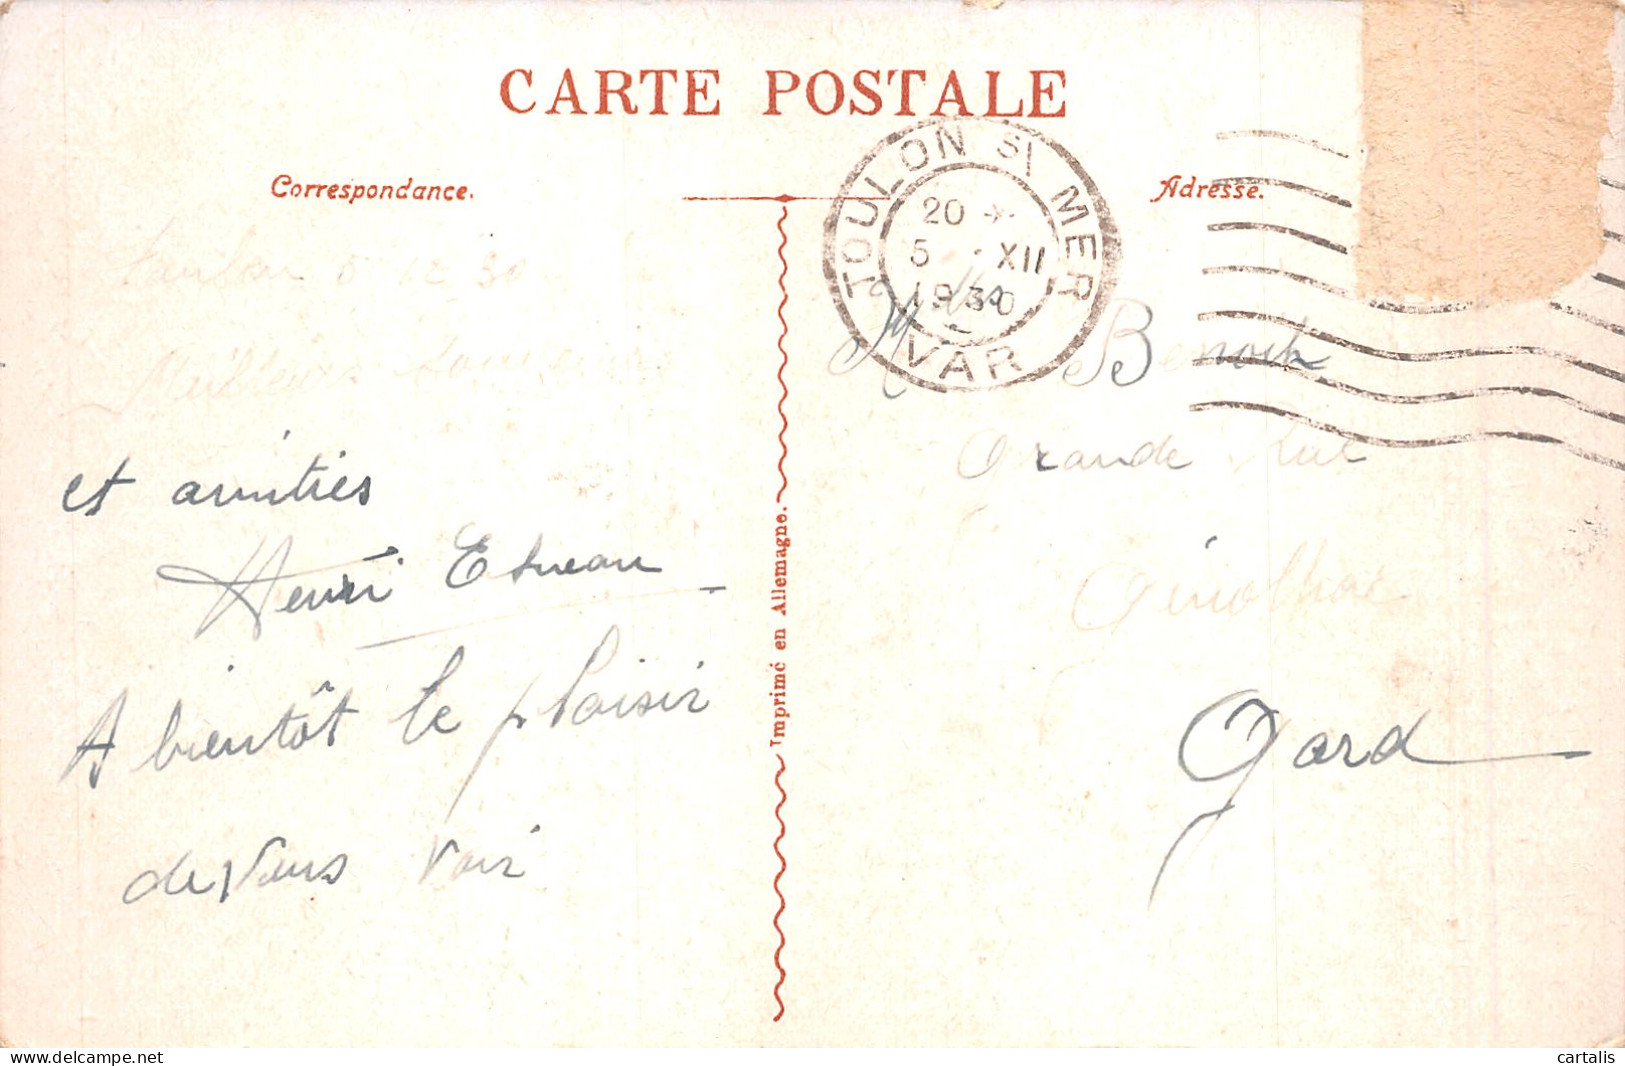 CARTE POSTALE
Correspondance.
Adresse.
TOULON S/ MER
20 *
5 XII
1930
VAR
5 12 30
Meilleurs
et amitiés
Henri
A bientôt le plaisir
de vous voir
Imprimé en Allemagne.
Benoit
Grande Rue
Génolhac
Gard
cartalis
delcampe.net